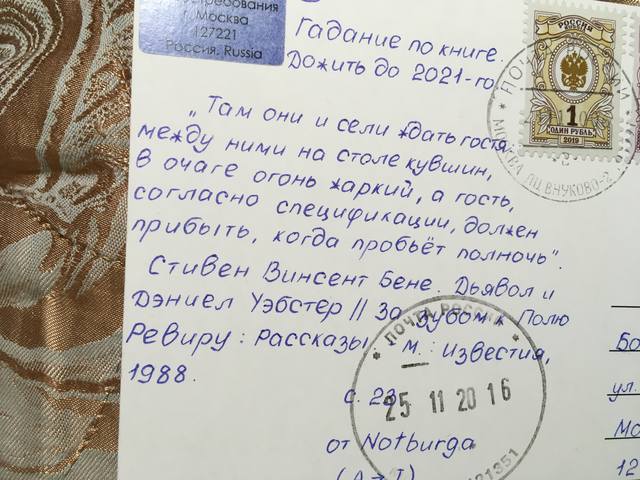 востребования
г. Москва
127221
Россия. Russia
Гадание по книге.
Дожить до 2021-го
„Там они и сели ждать гостя,
между ними на столе кувшин,
в очаге огонь жаркий, а гость,
согласно спецификации, должен
прибыть, когда пробьёт полночь“.
Стивен Винсент Бене. Дьявол и
Дэниел Уэбстер // За зубом к Полю
Ревиру: Рассказы. – М.: Известия,
1988.
с. 23
от Notburga
РОССИЯ
1
ОДИН РУБЛЬ
2019
МОСКВА ПЦ ВНУКОВО-2
ПОЧТА РОССИИ
25 11 20 16
131351
ул.
Мо
12